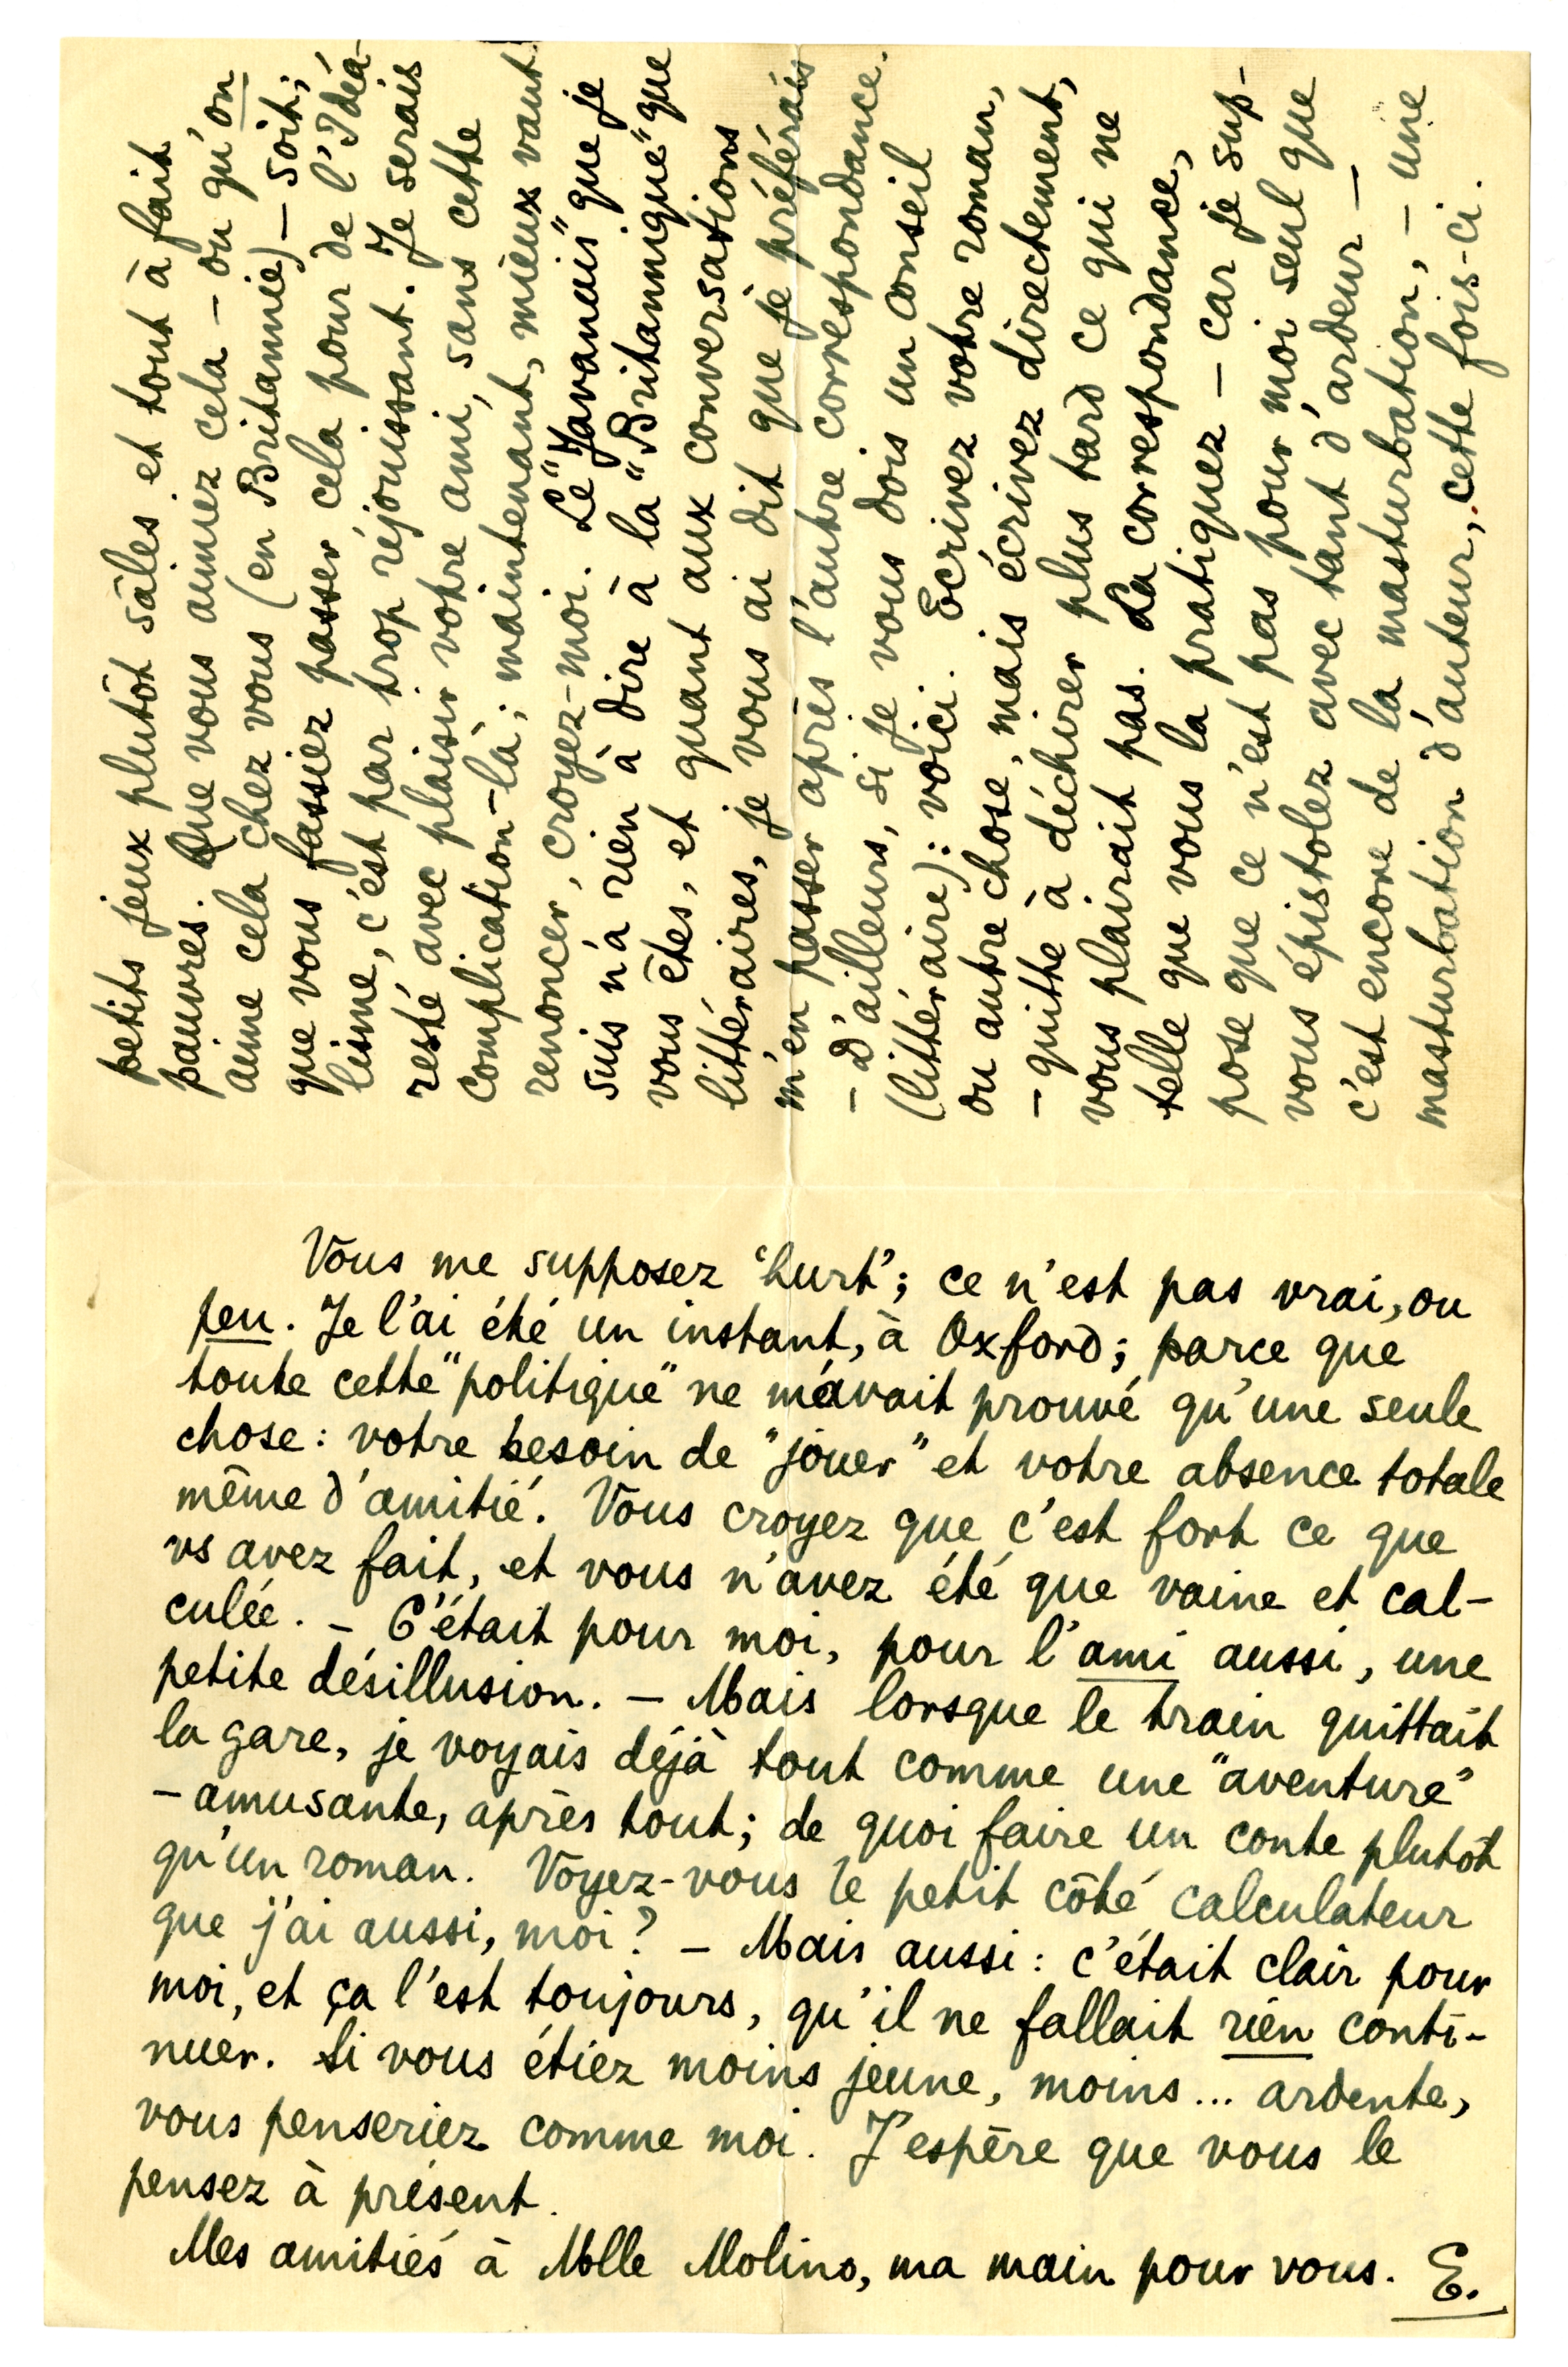 petits jeux plutôt sâles et tout à fait
pauvres. Que vous aimez cela – ou qu'on
aime cela chez vous (en Britannie) – soit;
que vous fassiez passer cela pour de l'Idéa-
lisme, c'est par trop réjouissant. Je serais
resté avec plaisir votre ami, sans cette
complication-là; maintenant, mieux vaut
renoncer, croyez-moi. Le "Javanais" que je
suis n'a rien à dire à la "Britannique" que
vous êtes, et quant aux conversations
littéraires, je vous ai dit que je préférais
m'en passer après l'autre correspondance.
– D'ailleurs, si je vous dois un conseil
(littéraire): voici. Ecrivez votre roman,
ou autre chose, mais écrivez directement,
– quitte à déchirer plus tard ce qui ne
vous plairait pas. La correspondance,
telle que vous la pratiquez – car je sup-
pose que ce n'est pas pour moi seul que
vous épistolez avec tant d'ardeur –
c'est encore de la masturbation, – une
masturbation d'auteur, cette fois-ci.
Vous me supposez 'hurt'; ce n'est pas vrai, ou
peu. Je l'ai été un instant, à Oxford; parce que
toute cette "politique" ne m'avait prouvé qu'une seule
chose: votre besoin de "jouer" et votre absence totale
même d'amitié. Vous croyez que c'est fort ce que
vs avez fait, et vous n'avez été que vaine et cal-
culée. – C'était pour moi, pour l'ami aussi, une
petite désillusion. – Mais lorsque le train quittait
la gare, je voyais déjà tout comme une "aventure"
– amusante, après tout; de quoi faire un conte plutôt
qu'un roman. Voyez-vous le petit côté calculateur
que j'ai aussi, moi? – Mais aussi: c'était clair pour
moi, et ça l'est toujours, qu'il ne fallait rien conti-
nuer. Si vous étiez moins jeune, moins... ardente,
vous penseriez comme moi. J'espère que vous le
pensez à présent.
Mes amitiés à Mlle Molino, ma main pour vous. E.